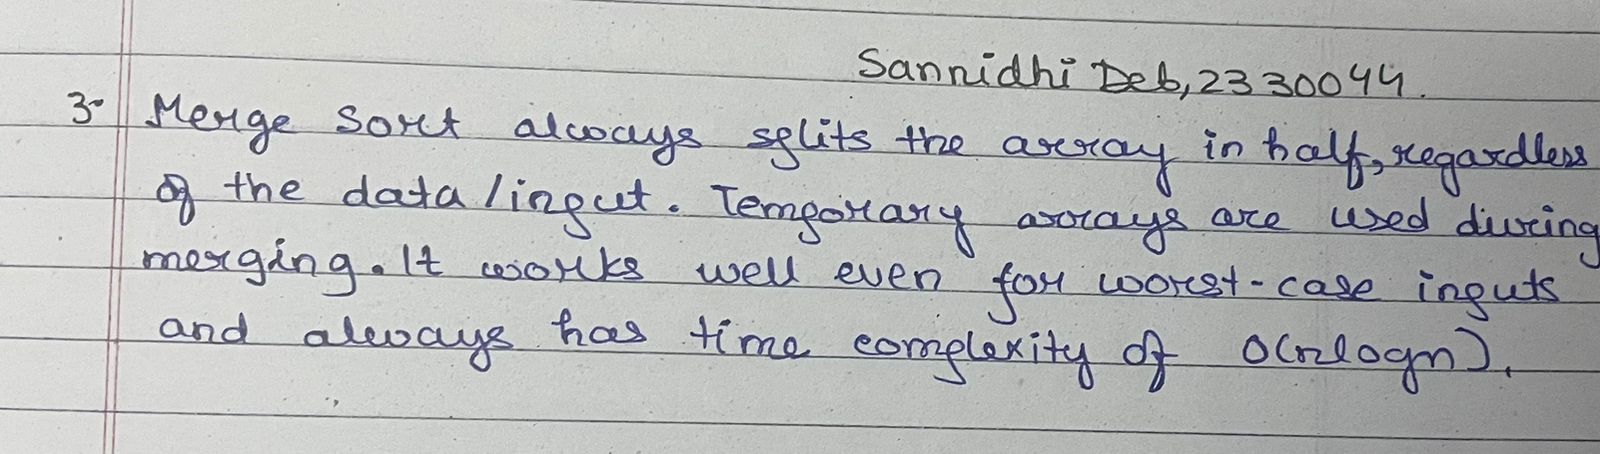 Sannidhi Deb, 2330044.
3. Merge sort always splits the array in half, regardless
of the data/input. Temporary arrays are used during
merging. It works well even for worst-case inputs
and always has time complexity of O(nlogn).